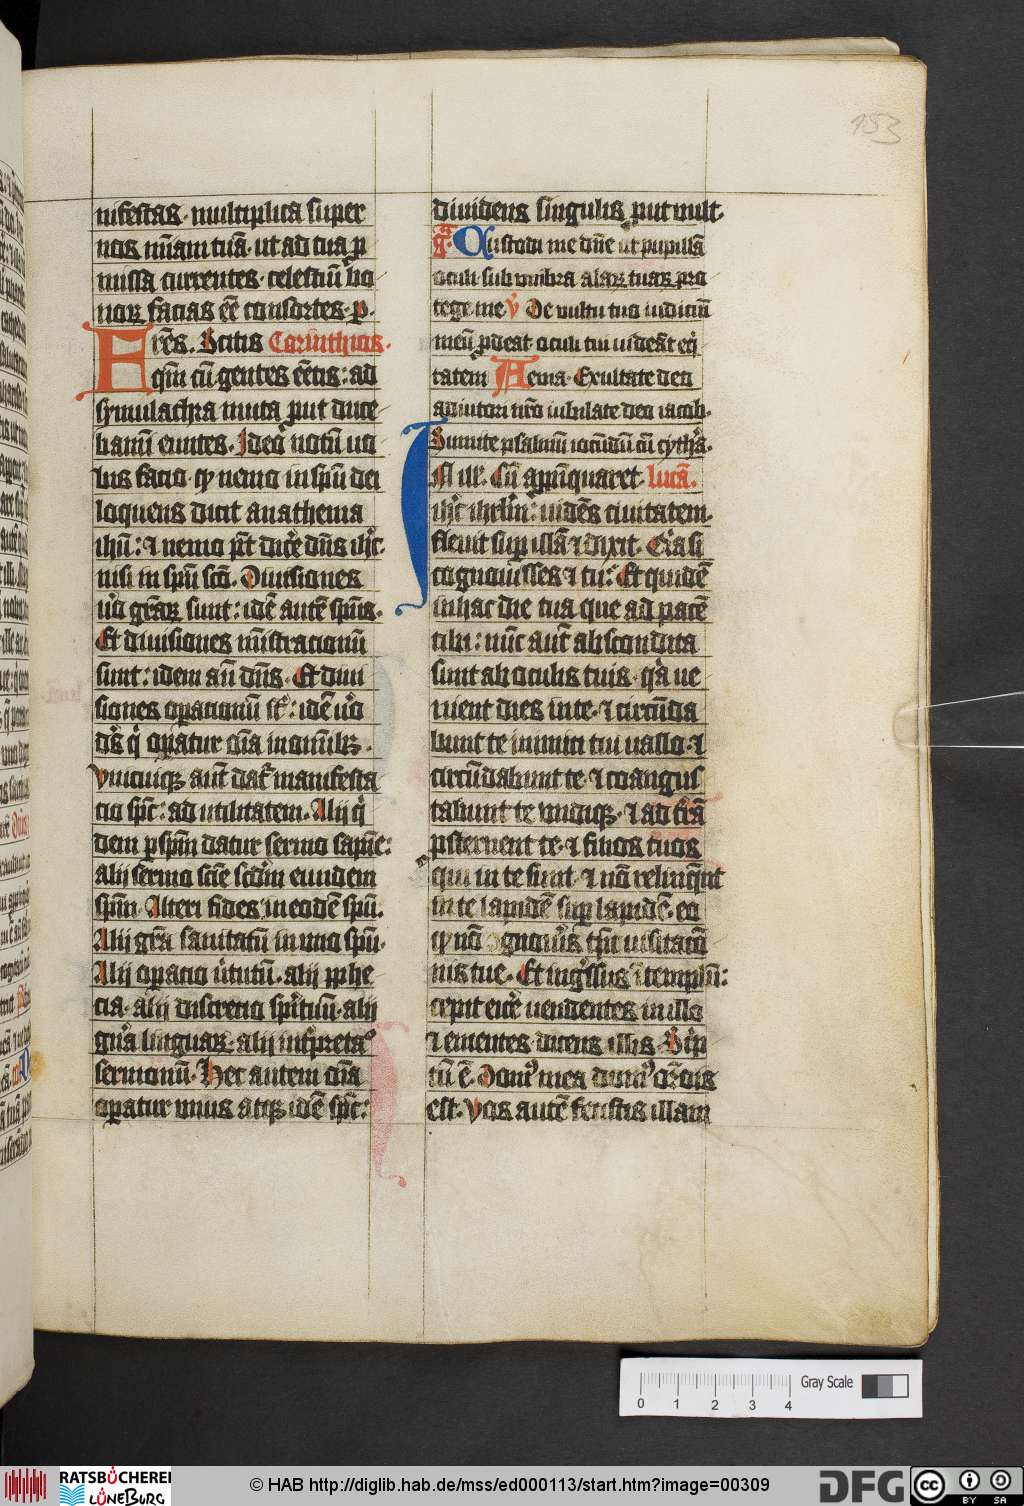 153
nifestas · multiplica super
nos mīam tuā · ut ad tua p
missa currentes · celestiū bo
noꝝ facias eē consortes · p ·
Frēs · Scitis Corinthios ·
qm̄ cū gentes eētis : ad
symulachra muta put duce
bamī euntes · Ideo notū uo
bis facio · qꝫ nemo in spū dei
loquens dicit anathema
ihū : ⁊ nemo pt̄ dicˀe dn̄s ihc ·
nisi in spū sc̄o · Diuisiones
uˀo grāꝝ sunt : idē autē spūs ·
Et diuisiones mīstracionū
sunt : idem aū dn̄s · Et diui
siones opacionū st̄ : idē uˀo
ds̄ qˀ opatur oīa in omībꝫ ·
Vnicuiqꝫ aut̄ dat̄ manifesta
cio spc̄ : ad utilitatem · Alij qˀ
dem p spm̄ datur sermo sapīe :
alij sermo scīe scd̄m eundem
spm̄ · Alteri fides in eodē spū ·
Alij grā sanitatū in uno spū ·
Alij opacio uˀtutū · alij pphe
cia · alij discrecio spˀituū · alij
genˀa linguaꝝ · alij intˀpretaº
sermonū · Hec autem oīa
opatur unus atqꝫ idē spc̄ :
diuidens singulis put uult ·
g̃ Custodi me dn̄e ut pupillā
oculi · sub umbra alaꝝ tuaꝝ pro
tege me · v̄ De uultu tuo iudiciū
meū pdeat · oculi tui uideāt eqˀ
tatem Aeuia · Exultate deo
adiutori nr̄o iubilate deo iacob ·
Sumite psalmū iocūdū cū cythˀa ·
In ill · Cū appīquaret · lucā ·
ihc ihrlm̄ : uidēs ciuitatem ·
fleuit sup illā ⁊ dixit · Qˀa si
cognouisses ⁊ tu : Et quidē
in hac die tua que ad pacē
tibi : nūc aut̄ abscondita
sunt ab oculis tuis · qˀa ue
nient dies in te · ⁊ circūda
bunt te inimici tui uallo · ⁊
circūdabunt te · ⁊ coangus
tabunt te undiqꝫ · ⁊ ad tˀrā
psternent te · ⁊ filios tuos
qui in te sunt · ⁊ nō relinq̄nt
in te lapidē sup lapidē · eo
qꝫ nō cognouˀis tp̄s uisitacō
nis tue · Et ingˀssus ī templū :
cepit eicˀe uendentes in illo
⁊ ementes · dicens illis · Scˀip
tū ē · Domˀ mea domˀ orōnis
est : Vos autē fecistis illam
Gray Scale
0 1 2 3 4
RATSBÜCHEREI
LÜNEBURG
© HAB http://diglib.hab.de/mss/ed000113/start.htm?image=00309
DFG
cc BY SA